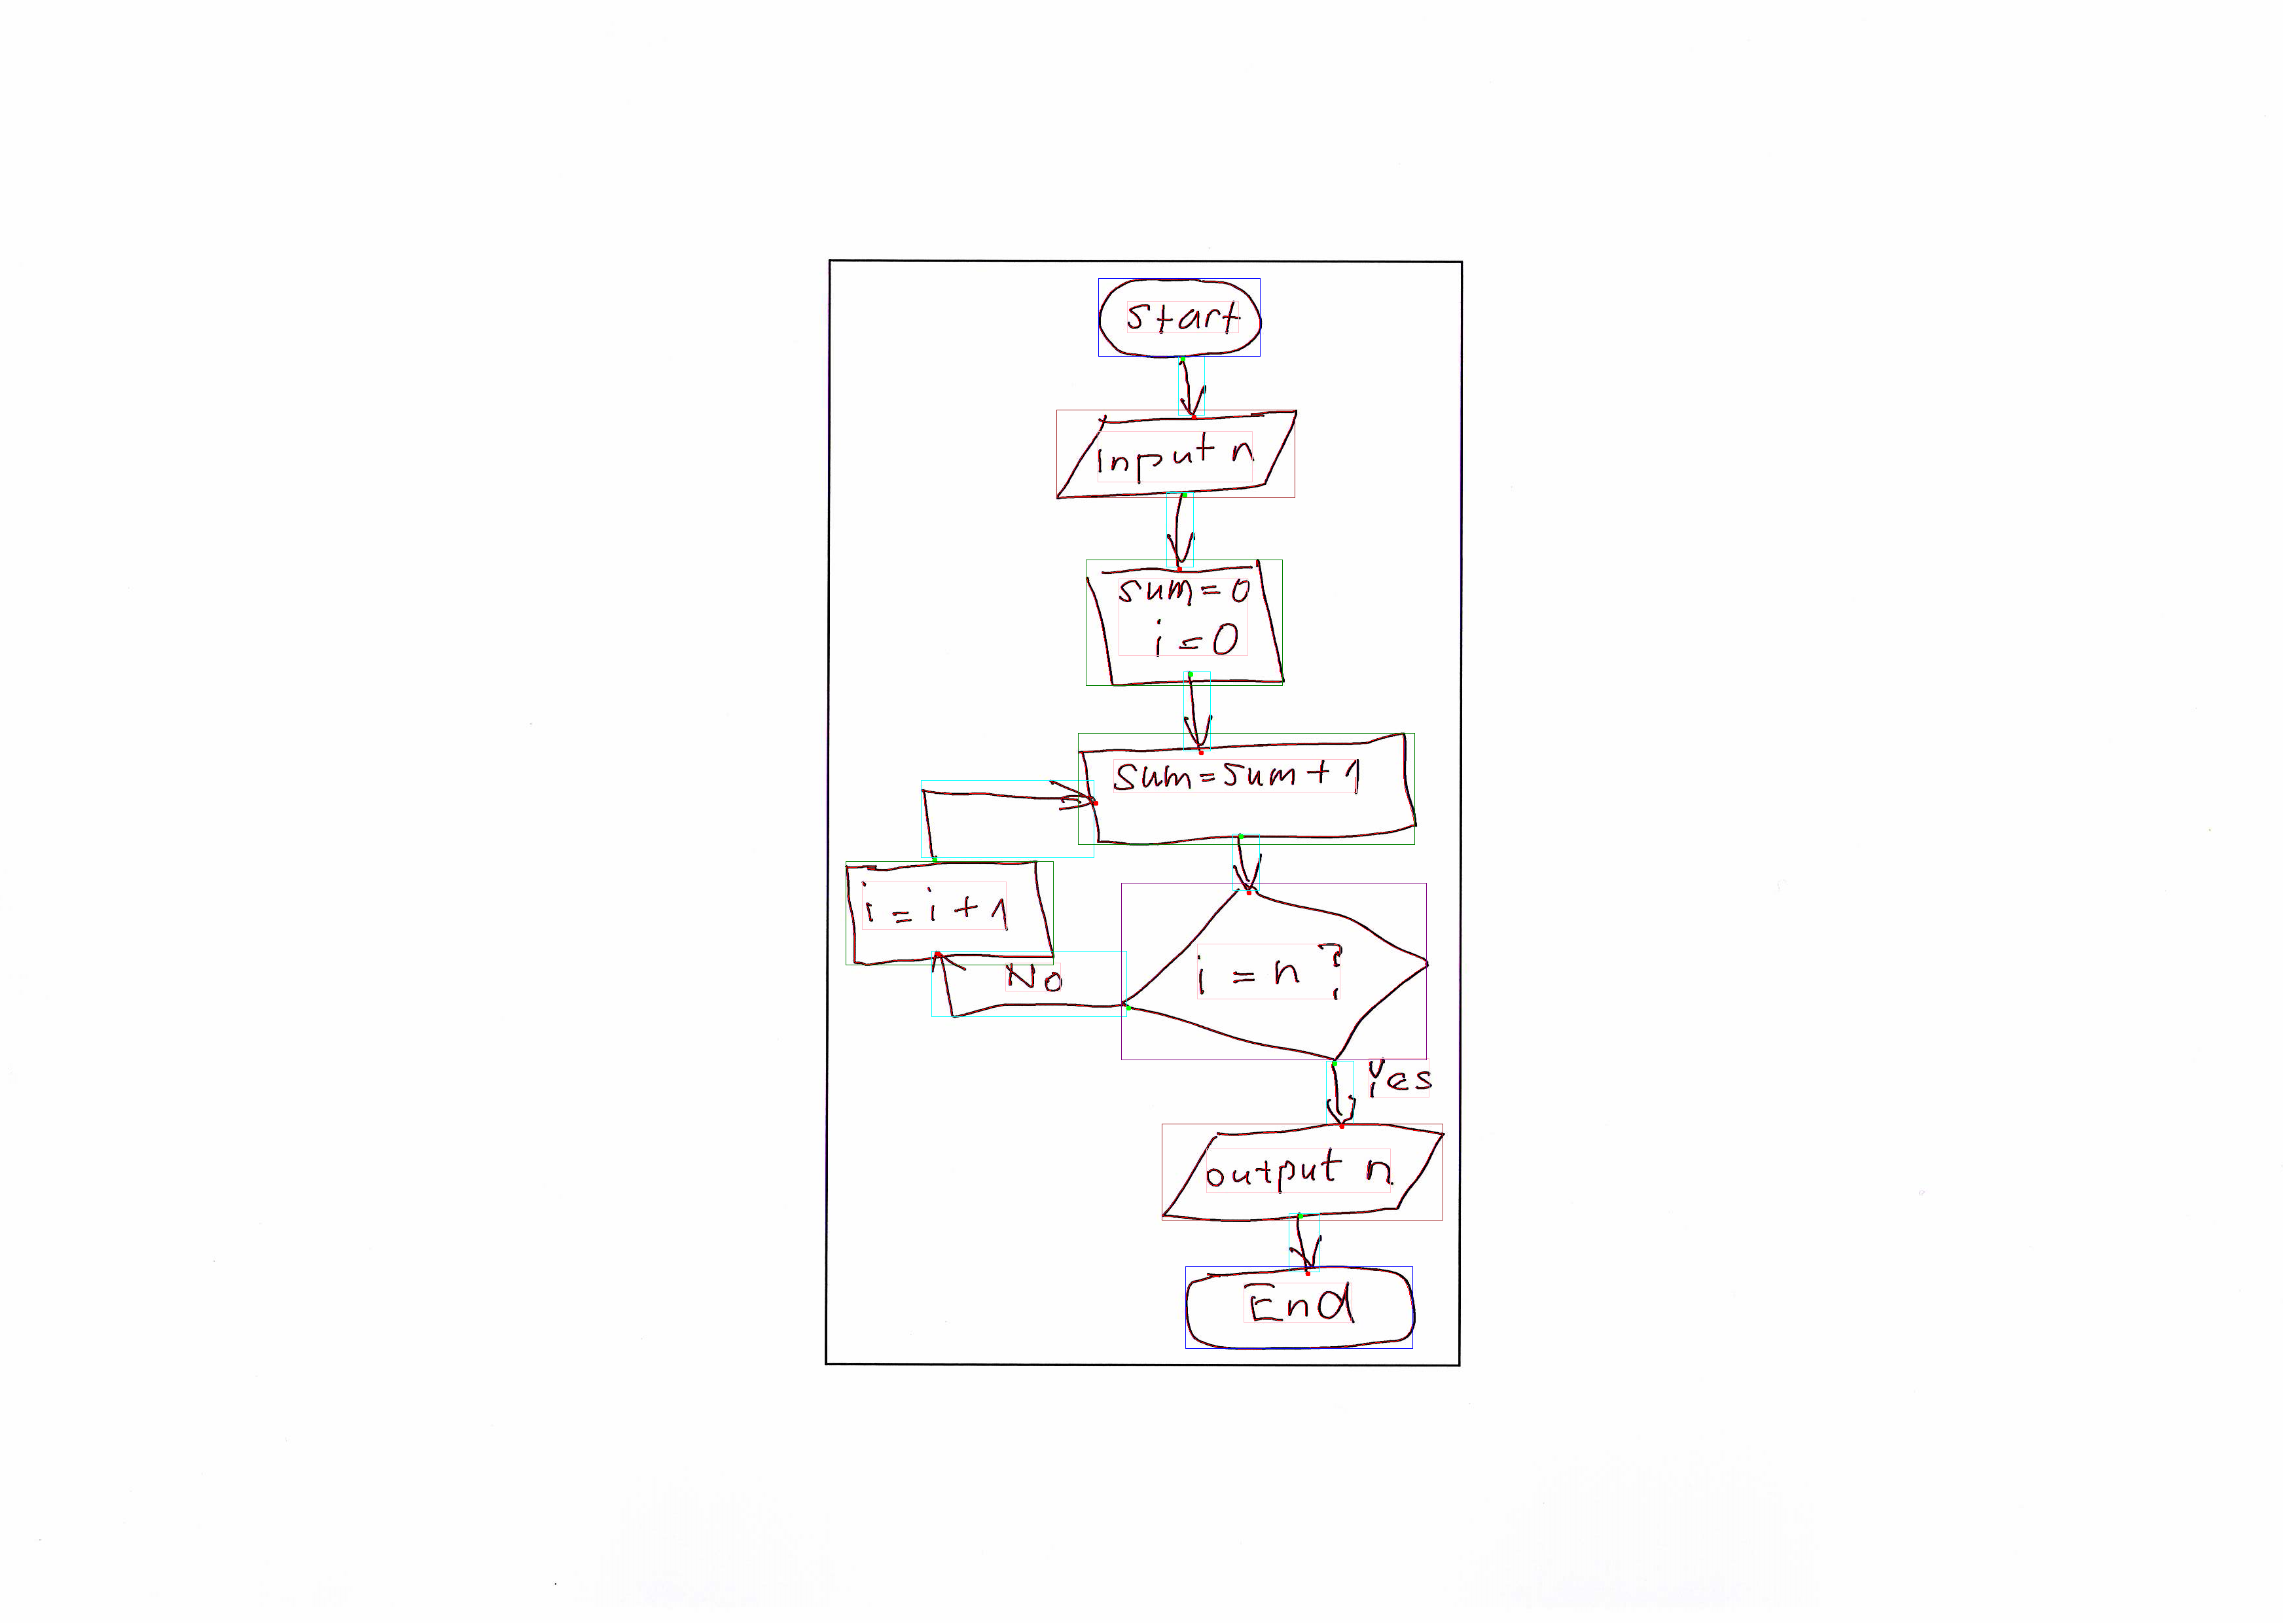 Start
Input n
sum=0
i=0
sum=sum+1
i=i+1
i=n?
No
Yes
output n
End